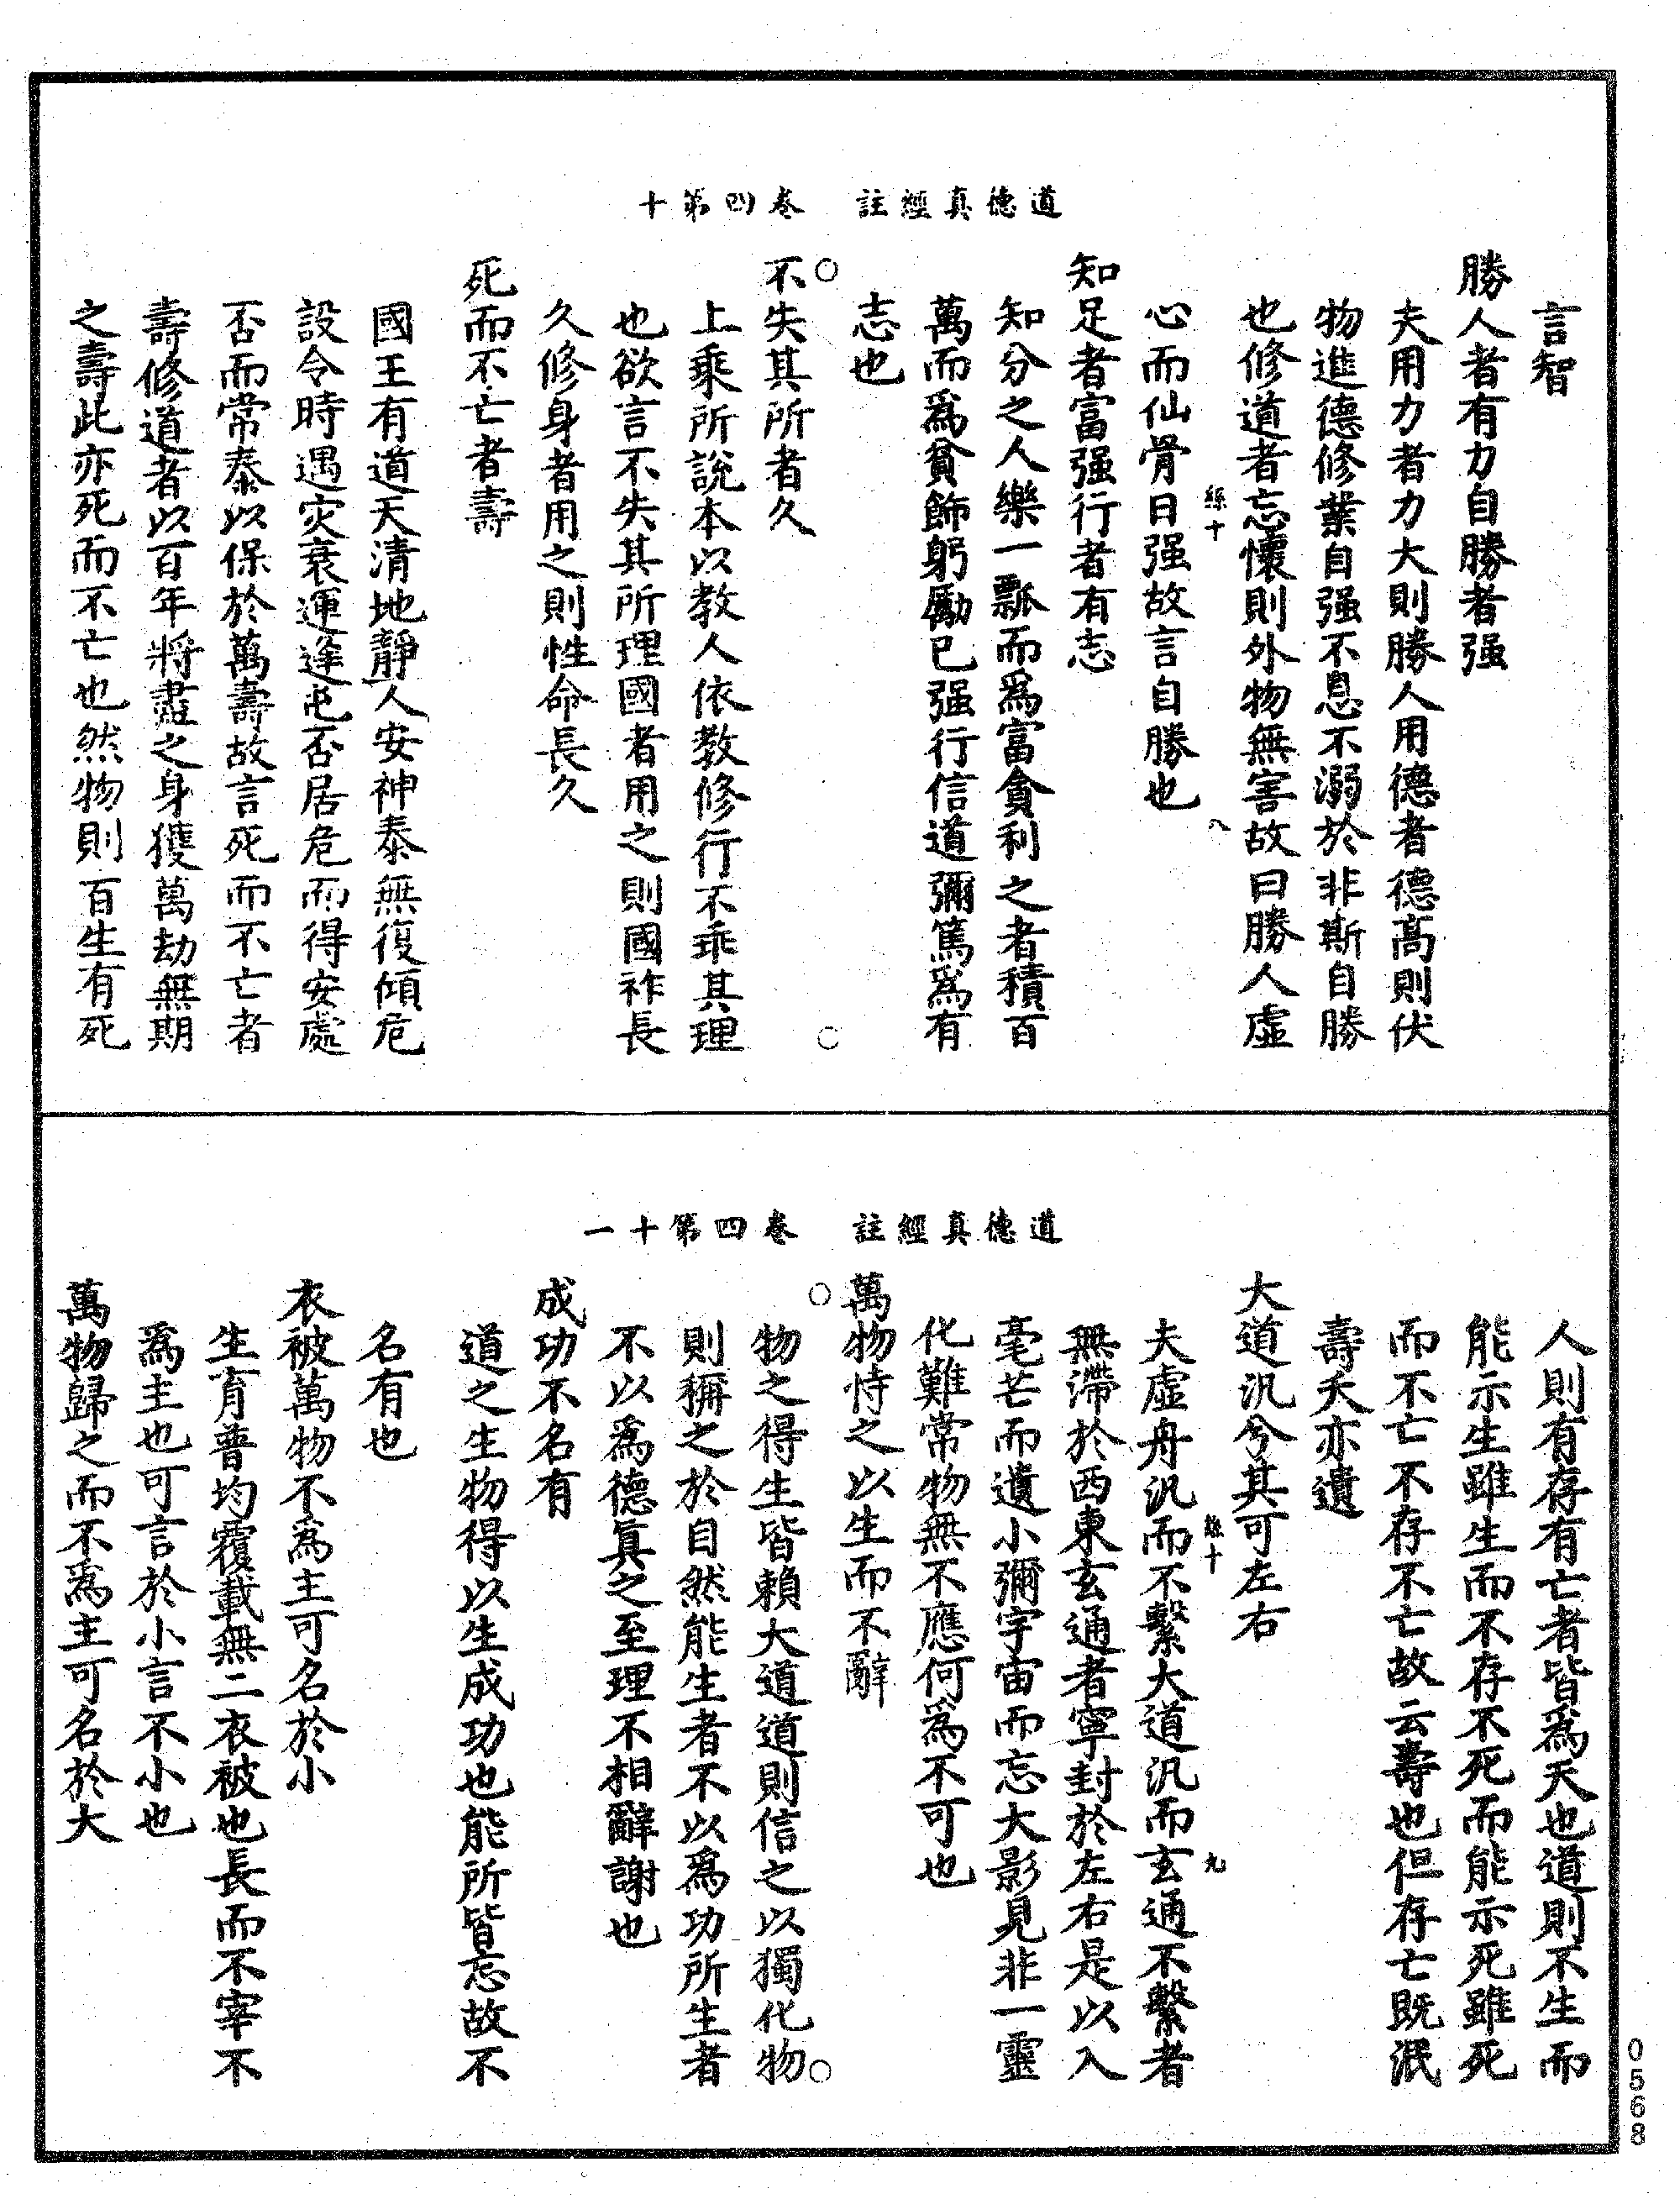 道德真經註　卷四第十
言智
勝人者有力自勝者强
夫用力者力大則勝人用德者德髙則伏
物進德修業自强不息不溺於非斯自勝
也修道者忘懷則外物無害故曰勝人虛
心而仙骨日强故言自勝也
絲十
八
知足者富强行者有志
知分之人樂一瓢而爲富貪利之者積百
萬而爲貧飾躬勵已强行信道彌篤爲有
志也
不失其所者久
上乘所說本以教人依教修行不乖其理
也欲言不失其所理國者用之則國祚長
久修身者用之則性命長久
死而不亡者壽
國王有道天清地靜人安神泰無復傾危
設令時遇灾衰運逢屯否居危而得安處
否而常泰以保於萬壽故言死而不亡者
壽修道者以百年將盡之身獲萬劫無期
之壽此亦死而不亡也然物則百生有死
道德真經註　卷四第十一
人則有存有亡者皆爲夭也道則不生而
能示生雖生而不存不死而能示死雖死
而不亡不存不亡故云壽也但存亡既泯
壽夭亦遺
大道汎兮其可左右
絲十
九
夫虛舟汎而不繫大道汎而玄通不繫者
無滯於西東玄通者寧封於左右是以入
毫芒而遺小彌宇宙而忘大影見非一靈
化難常物無不應何爲不可也
萬物恃之以生而不辭
物之得生皆賴大道道則信之以獨化物
則稱之於自然能生者不以爲功所生者
不以爲德真之至理不相辭謝也
成功不名有
道之生物得以生成功也能所皆忘故不
名有也
衣被萬物不爲主可名於小
生育普均覆載無二衣被也長而不宰不
爲主也可言於小言不小也
萬物歸之而不爲主可名於大
0568